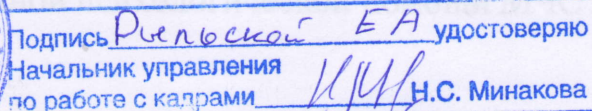 Подпись Рыльской ЕА удостоверяю
Начальник управления
по работе с кадрами Н.С. Минакова